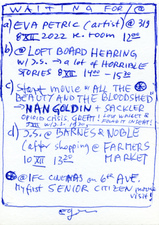 WAITING FOR/@
a) EVA PETRIC (artist) @ 319
8 XII 2022 K. room 12
b) @ LOFT BOARD HEARING
W/J.S. → a lot of HORRIBLE
STORIES 8 XII 14⁰⁰ – 15³⁰
c) Start movie "ALL THE
BEAUTY AND THE BLOODSHED"
→ NAN GOLDIN + SACKLER
OPIOID CRISIS, GREAT! LOST WALLET &
FOUND IT INTACT!
d) J.S. @ BARNES & NOBLE
(after shopping @ FARMERS
10 XII 13²⁰ MARKET
@ IFC CINEMAS on 6th AVE.
My first SENIOR CITIZEN movie
VISIT!